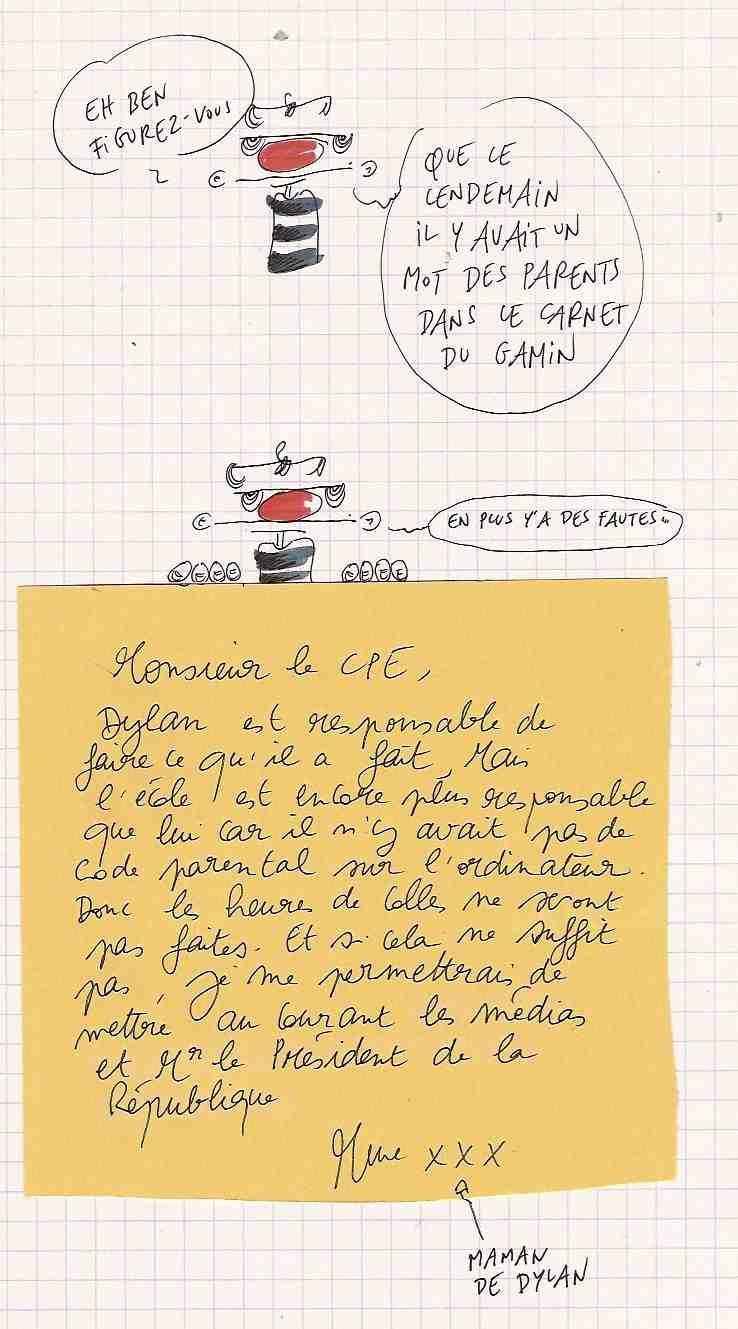 EH BEN
FIGUREZ-VOUS
QUE LE
LENDEMAIN
IL Y AVAIT UN
MOT DES PARENTS
DANS LE CARNET
DU GAMIN
EN PLUS Y'A DES FAUTES...
Monsieur le CPE,
Dylan est responsable de
faire ce qu'il a fait, Mais
l'école est encore plus responsable
que lui car il n'y avait pas de
code parental sur l'ordinateur.
Donc les heures de colles ne seront
pas faites. Et si cela ne suffit
pas, je me permettrais de
mettre au courant les médias
et Mr le Président de la
République
Mme XXX
MAMAN
DE DYLAN